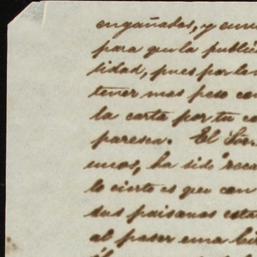 engañados, y
para que la public
sidad, pues por la
tener mas peso con
la carta por tu co
paresca. El Sor.
unos, ha sido
lo cierto es que con
sus paisanos esta
al pasar una